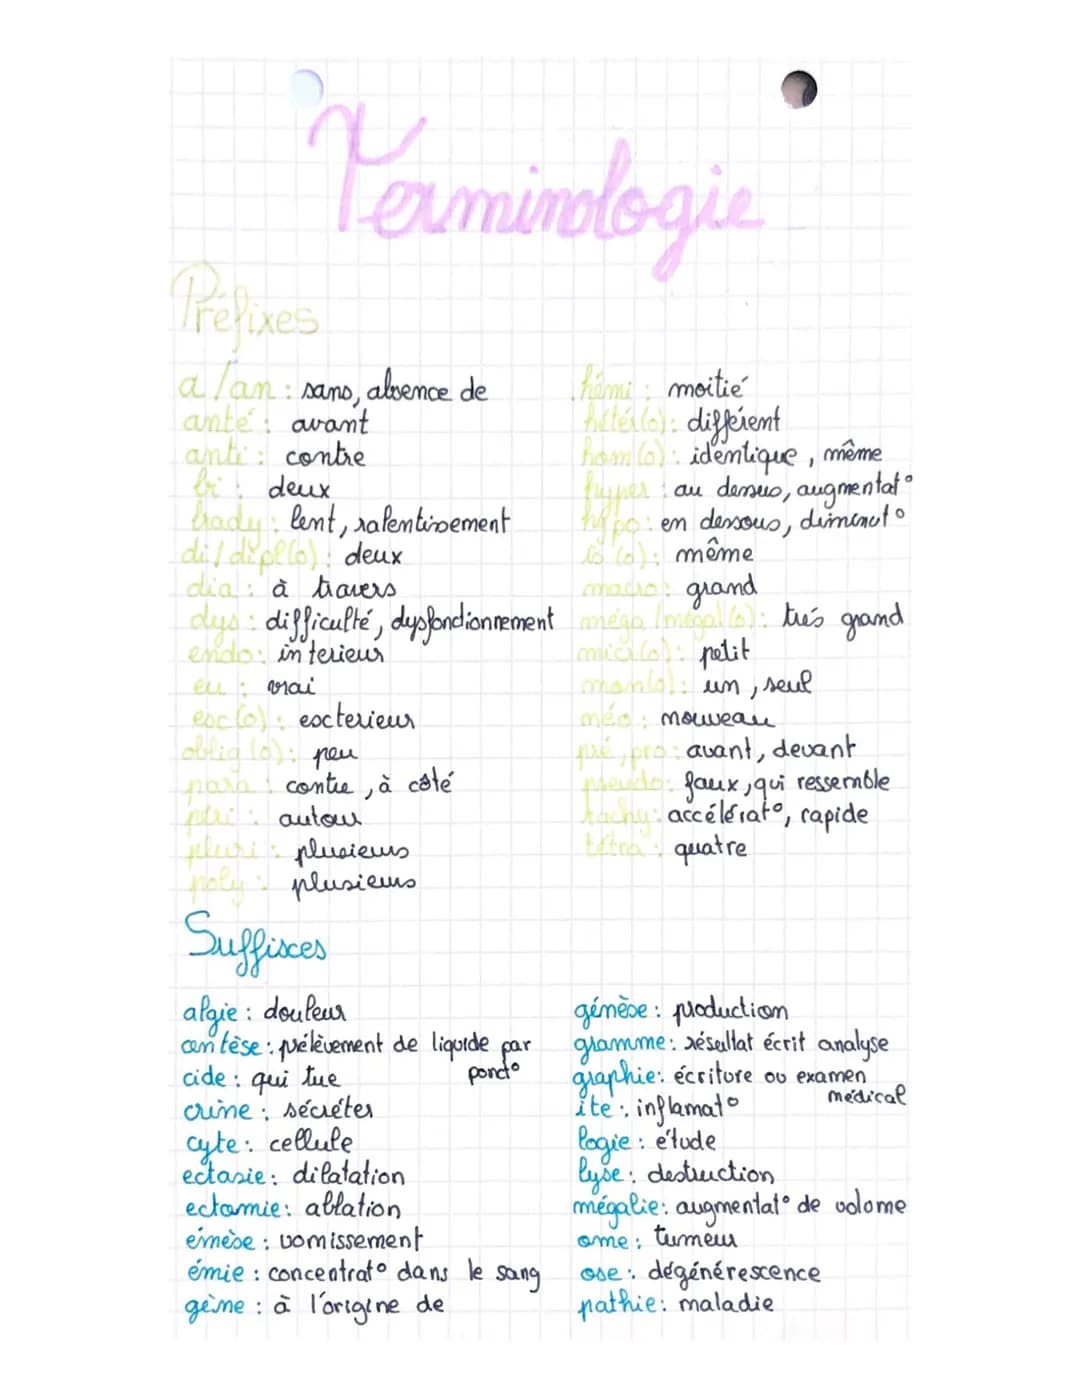 Terminologie
Préfixes
a/an : sans, absence de
anté : avant
anti : contre
bi : deux
brady : lent, ralentissement
di/dipl(o) : deux
dia : à travers
dys : difficulté, dysfonctionnement
endo : interieur
eu : vrai
ex(o) : exterieur
oblig(o) : peu
para : contre, à côté
péri : autour
pluri : plusieurs
poly : plusieurs
hémi : moitié
hétér(o) : différent
hom(o) : identique, même
hyper : au dessus, augmentat°
hypo : en dessous, diminut°
is(o) : même
macro : grand
méga/mégal(o) : trés grand
micr(o) : petit
mon(o) : un, seul
néo : nouveau
pré, pro : avant, devant
pseudo : faux, qui ressemble
tachy : accélérat°, rapide
tétra : quatre
Suffixes
algie : douleur
centèse : prélèvement de liquide par
ponct°
cide : qui tue
crine : sécréter
cyte : cellule
ectasie : dilatation
ectomie : ablation
émèse : vomissement
émie : concentrat° dans le sang
gène : à l'origine de
génèse : production
gramme : résultat écrit analyse
graphie : écriture ou examen
médical
ite : inflamat°
logie : étude
lyse : destruction
mégalie : augmentat° de volume
ome : tumeur
ose : dégénérescence
pathie : maladie